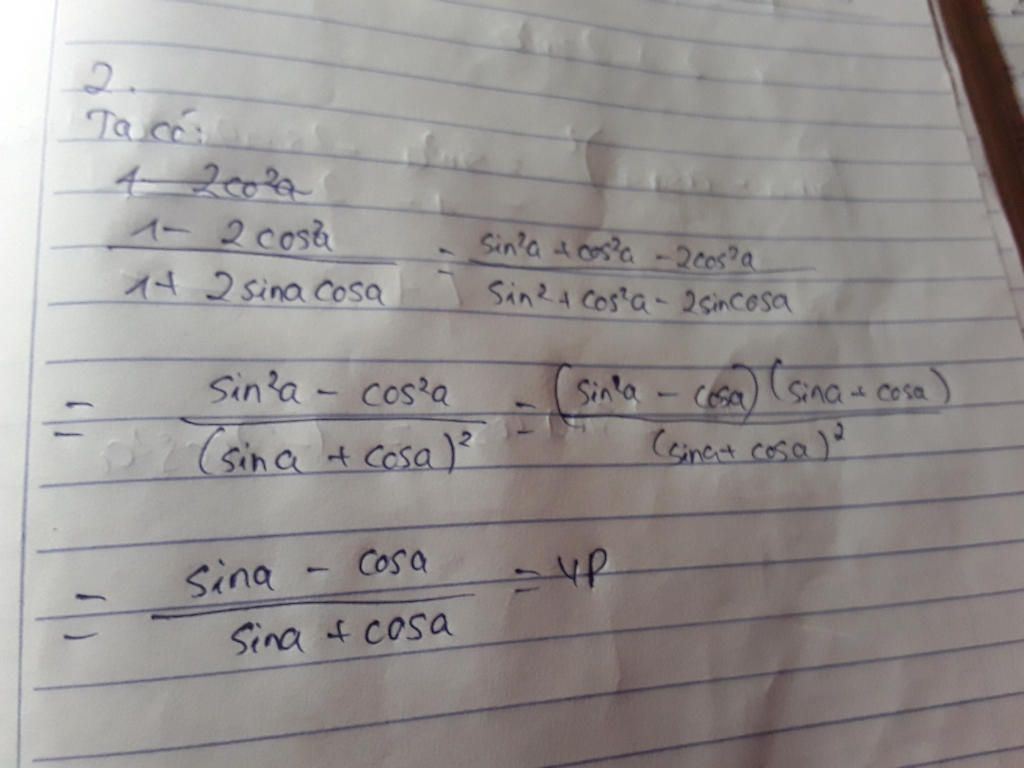 2.
Ta có:
1 - 2co²a
1 - 2cos²a / 1 + 2sina cosa = sin²a + cos²a - 2cos²a / sin² + cos²a - 2sincosa
= sin²a - cos²a / (sina + cosa)² = (sin²a - cosa)(sina + cosa) / (sina + cosa)²
= sina - cosa / sina + cosa = VP